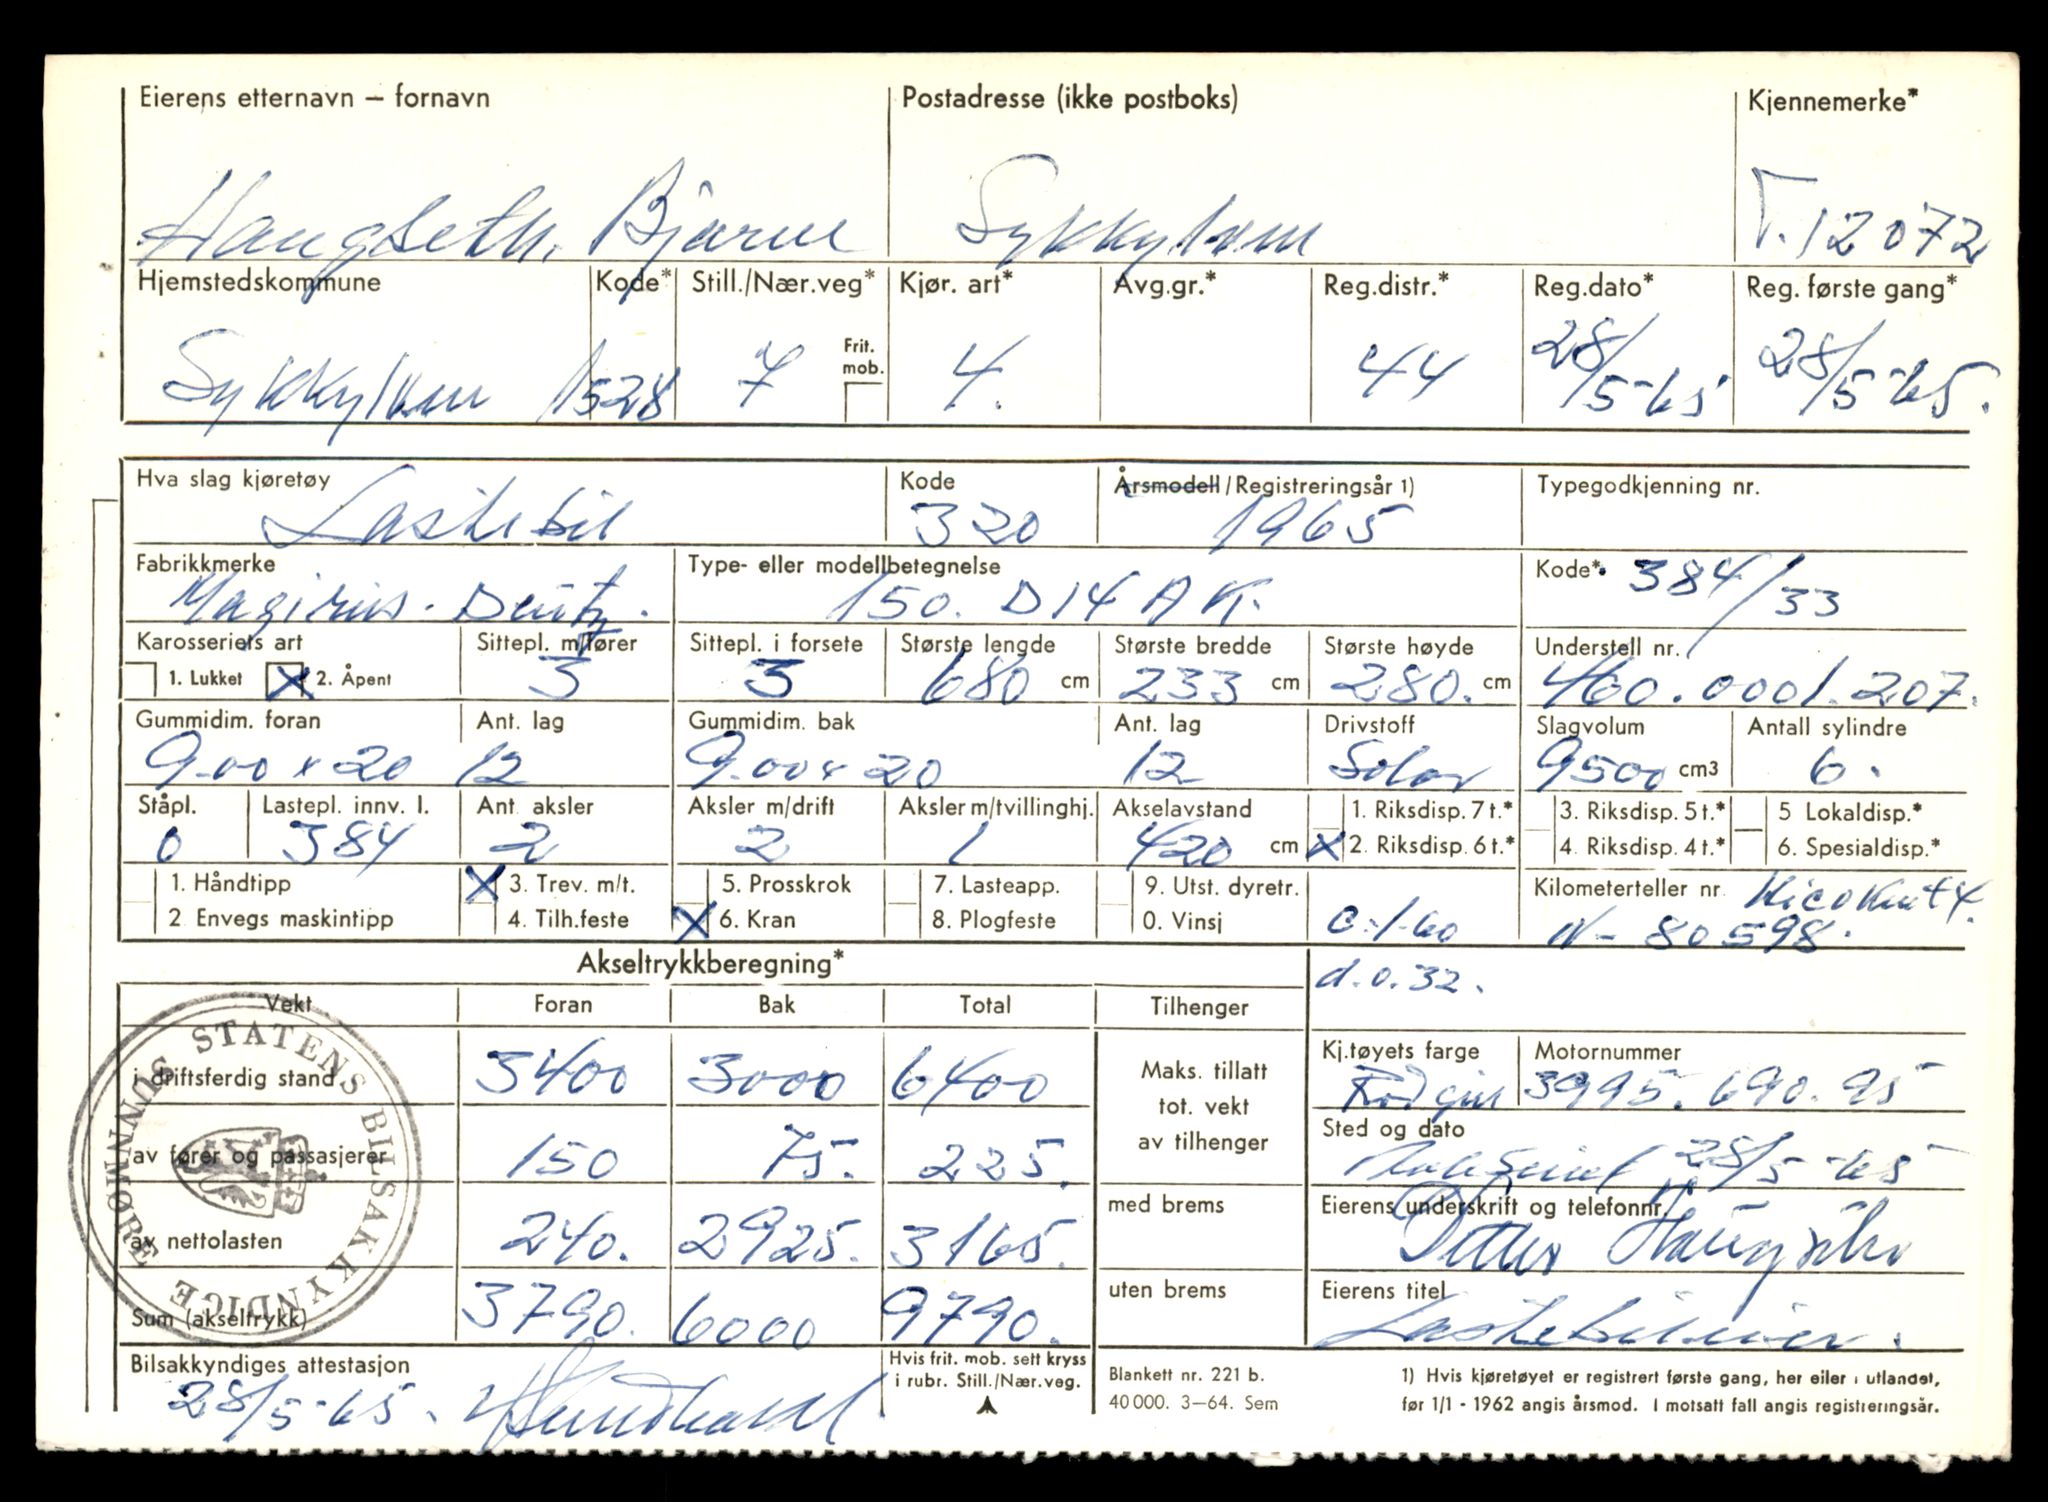 Eierens etternavn – fornavn Postadresse (ikke postboks) Kjennemerke*
Haugseth, Bjarne Sykkylven T.12072
Hjemstedskommune Kode* Still./Nær.veg* Kjør. art* Avg.gr.* Reg.distr.* Reg.dato* Reg. første gang*
Sykkylven 1528 7 Frit. mob. 4. 44 28/5-65 28/5-65.
Hva slag kjøretøy Kode Årsmodell/Registreringsår 1) Typegodkjenning nr.
Lastebil 320 1965
Fabrikkmerke Type- eller modellbetegnelse Kode* 384/33
Magirus. Deutz. 150. D 14 A K.
Karosseriets art Sittepl. m/fører Sittepl. i forsete Største lengde Største bredde Største høyde Understell nr.
1. Lukket X 2. Åpent 3 3 680 cm 233 cm 280. cm 460.0001.207.
Gummidim. foran Ant. lag Gummidim. bak Ant. lag Drivstoff Slagvolum Antall sylindre
9.00 x 20 12 9.00 x 20 12 Solar 9500 cm3 6.
Ståpl. Lastepl. innv. l. Ant. aksler Aksler m/drift Aksler m/tvillinghj. Akselavstand 1. Riksdisp. 7 t.* 3. Riksdisp. 5 t.* 5 Lokaldisp.*
0 384 2 2 1 420 cm X 2. Riksdisp. 6 t.* 4. Riksdisp. 4 t.* 6. Spesialdisp.*
1. Håndtipp X 3. Trev. m/t. 5. Prosskrok 7. Lasteapp. 9. Utst. dyretr. Kilometerteller nr
2 Envegs maskintipp 4. Tilh.feste X 6. Kran 8. Plogfeste 0. Vinsj C.1-60 N- 80598.
Akseltrykkberegning* d.0.32.
Vekt Foran Bak Total Tilhenger
i driftsferdig stand 3400 3000 6400 Maks. tillatt tot. vekt av tilhenger
Kj.tøyets farge Motornummer
3995.690.95
av fører og passasjerer 150 75. 225.
Sted og dato
28/5-65
av nettolasten 240. 2925. 3165. med brems
Eierens underskrift og telefonnr.
Sum (akseltrykk) 3790. 6000 9790. uten brems
Eierens titel
Lastebileier.
STATENS BILSAKKYNDIGE SUNNMØRE
Bilsakkyndiges attestasjon Hvis frit. mob. sett kryss i rubr. Still./Nær.veg.
28/5-65.
Blankett nr. 221 b.
40 000. 3–64. Sem
1) Hvis kjøretøyet er registrert første gang, her eller i utlandet,
før 1/1 - 1962 angis årsmod. I motsatt fall angis registreringsår.